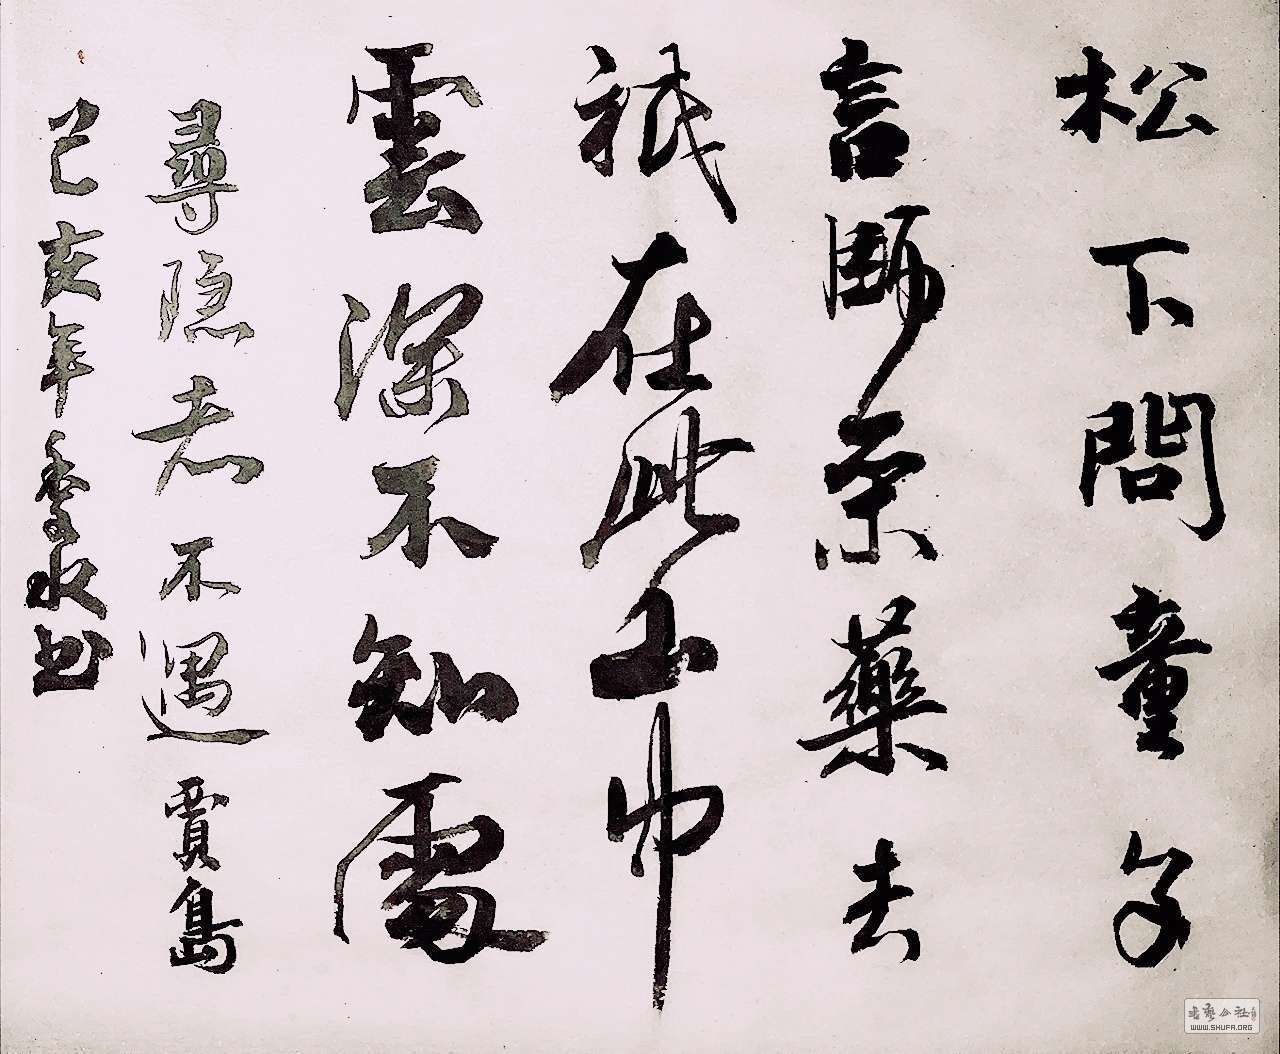 松下問童子
言師采藥去
祇在此山中
雲深不知處
尋隐者不遇 賈島
己亥年季水书
书艺公社
WWW.SHUFA.ORG